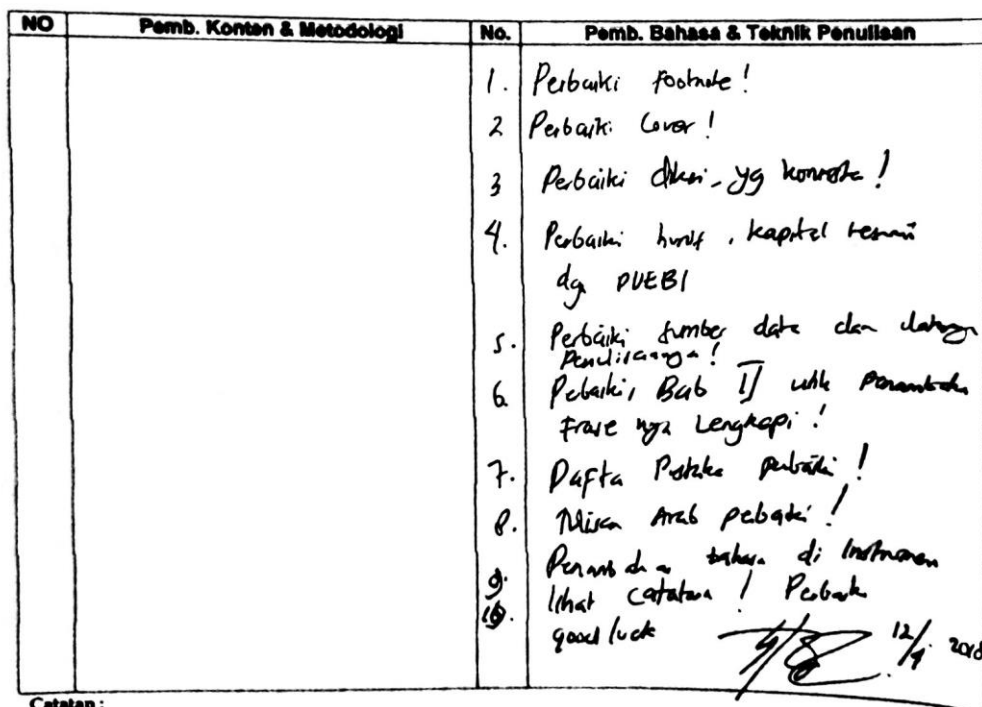 NO Pemb. Konten & Metodologi No. Pemb. Bahasa & Teknik Penulisan
1. Perbaiki Footnote!
2 Perbaiki Cover!
3 Perbaiki diksi yg
4. Perbaiki huruf, kapital sesuai
dg PUEBI
5. Perbaiki sumber data dan
6. Pebaiki, Bab II
Frase nya Lengkapi!
7. Dafta Pstaka perbaiki!
8. Arab pebaiki!
9. bahasa di Instrumen
10. lihat catatan! Perbaik
good luck 12/4 2018
Catatan: